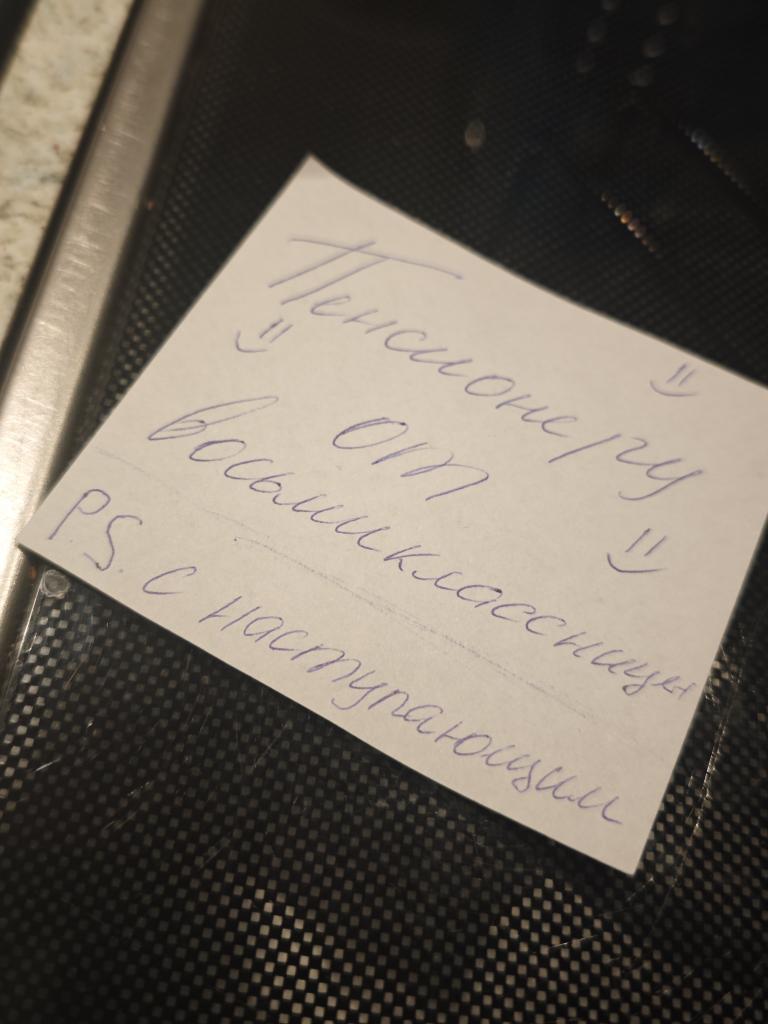 Пенсионеру
от
восьмиклассницы
P.S. с наступающим